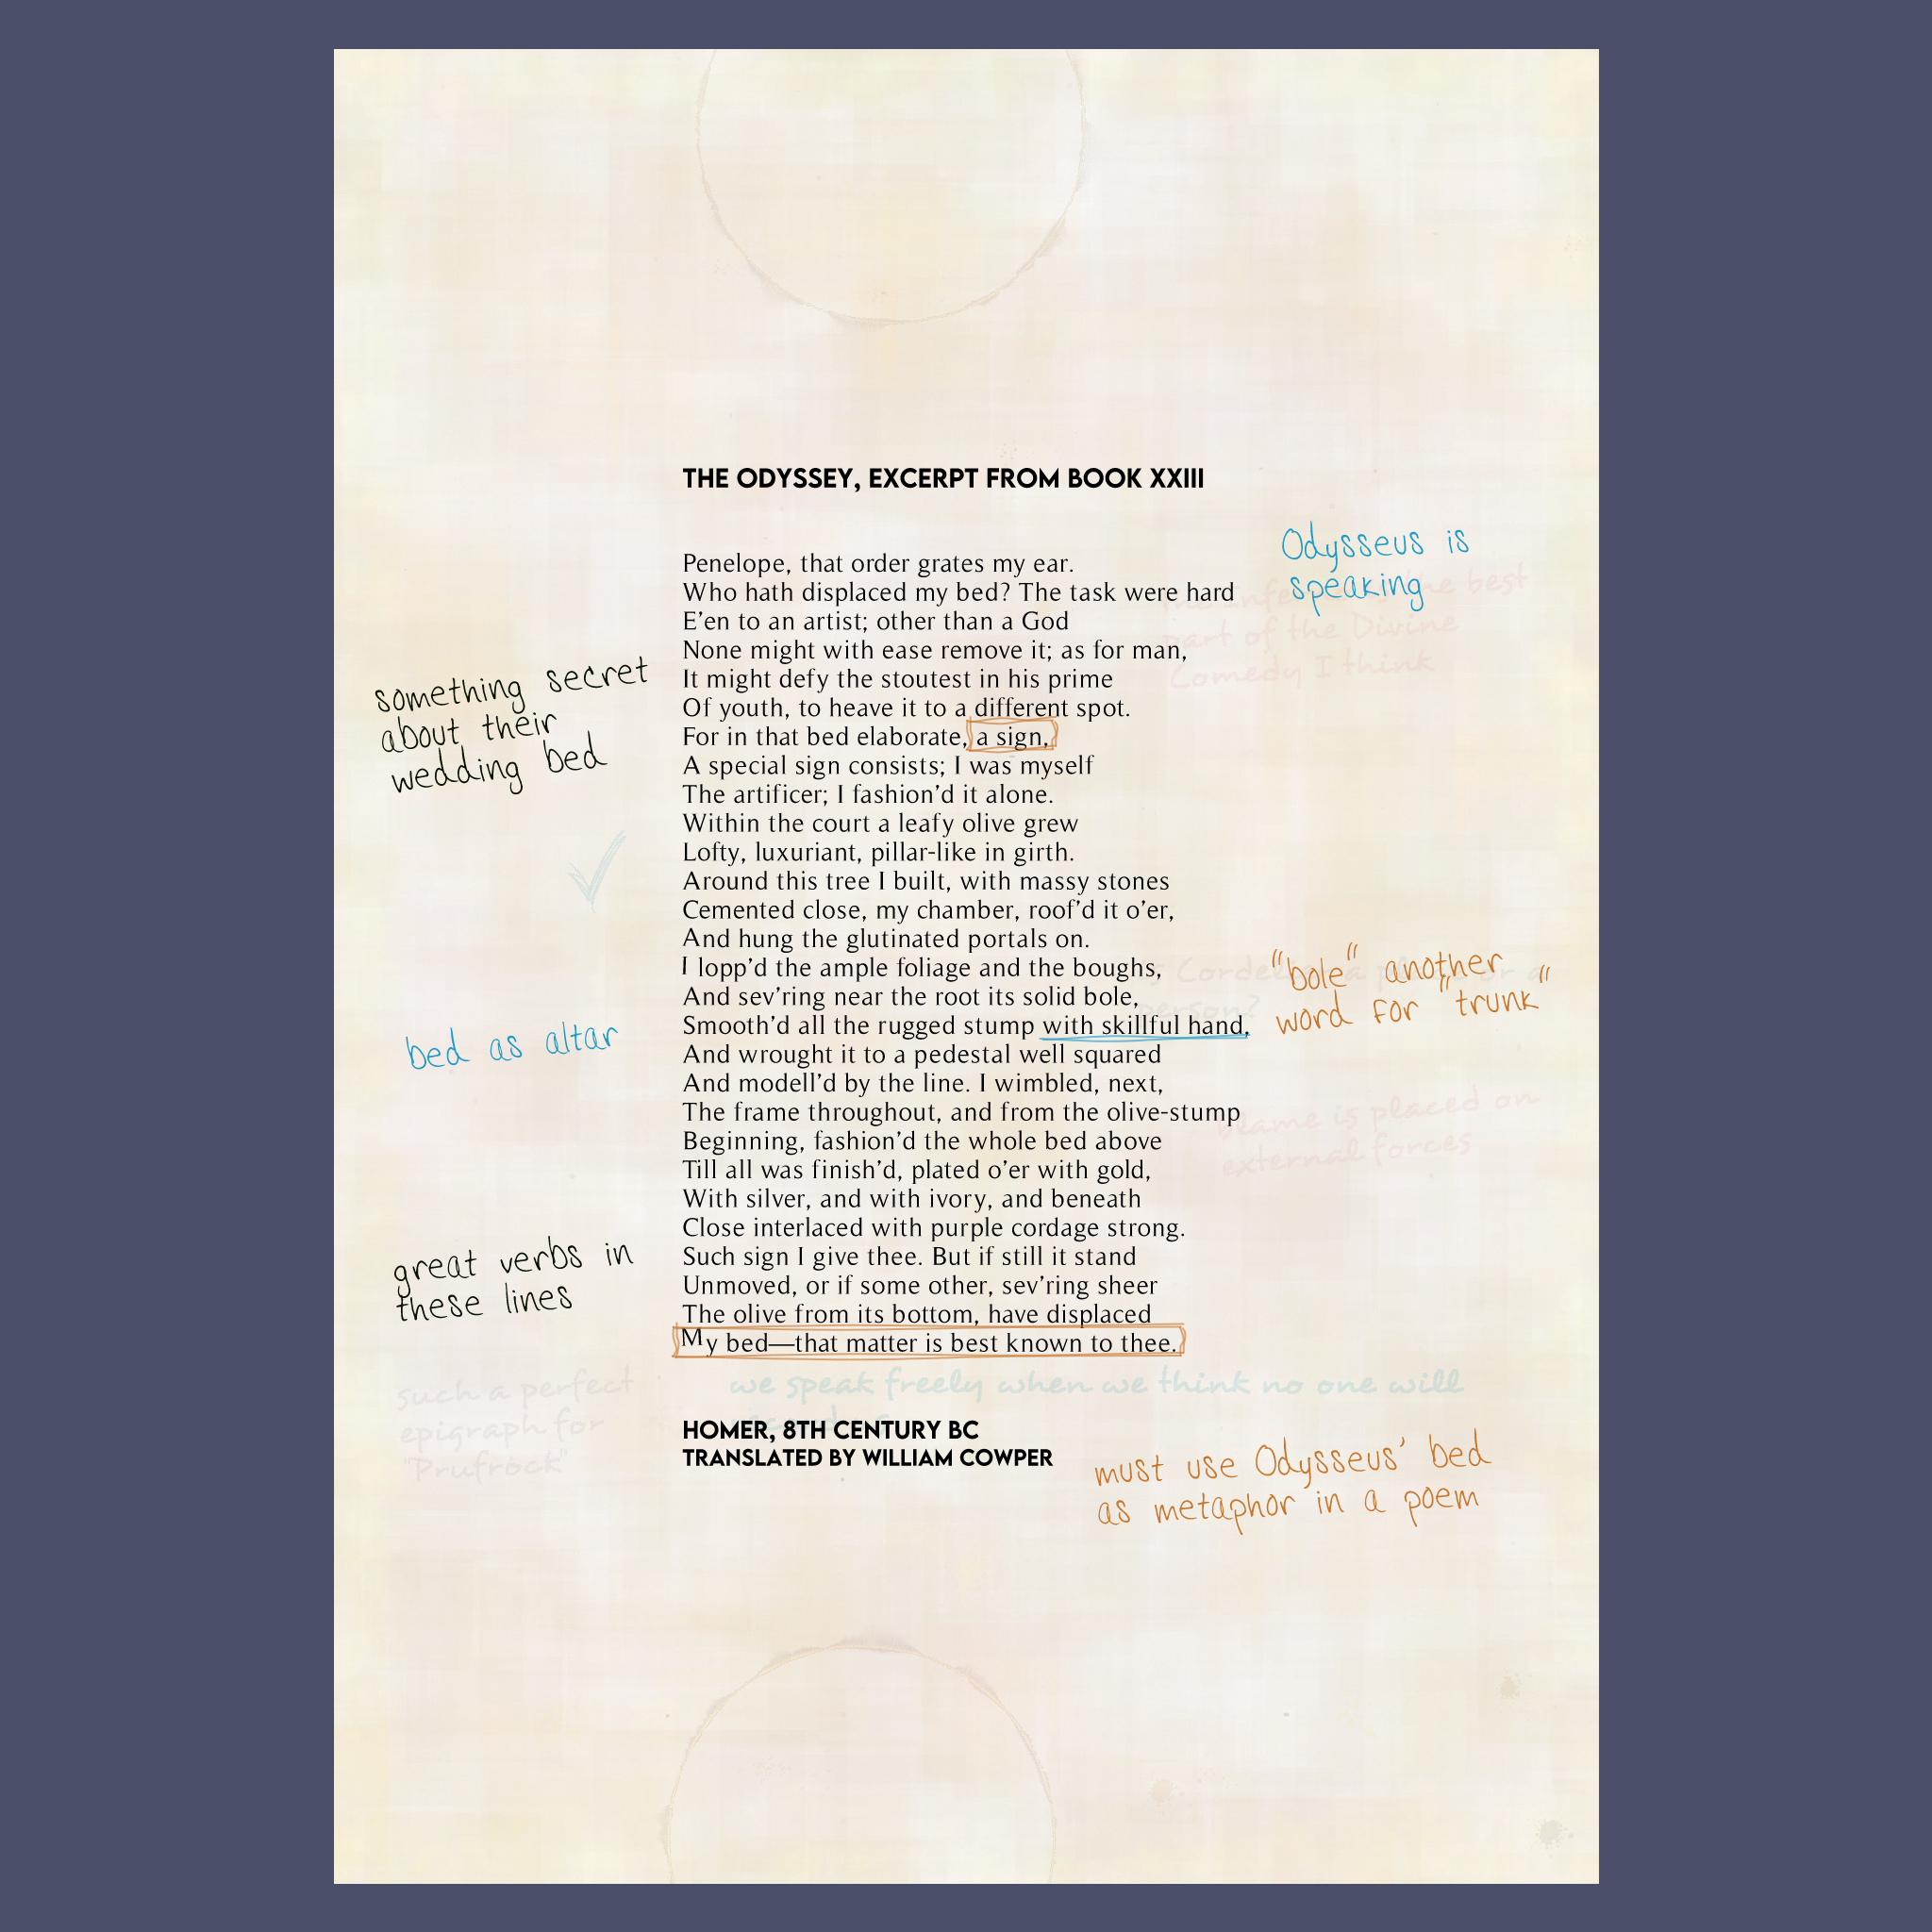 THE ODYSSEY, EXCERPT FROM BOOK XXIII
Odysseus is
speaking
Penelope, that order grates my ear.
Who hath displaced my bed? The task were hard
E’en to an artist; other than a God
None might with ease remove it; as for man,
It might defy the stoutest in his prime
Of youth, to heave it to a different spot.
For in that bed elaborate, a sign,
A special sign consists; I was myself
The artificer; I fashion’d it alone.
Within the court a leafy olive grew
Lofty, luxuriant, pillar-like in girth.
Around this tree I built, with massy stones
Cemented close, my chamber, roof’d it o’er,
And hung the glutinated portals on.
I lopp’d the ample foliage and the boughs,
And sev’ring near the root its solid bole,
Smooth’d all the rugged stump with skillful hand,
And wrought it to a pedestal well squared
And modell’d by the line. I wimbled, next,
The frame throughout, and from the olive-stump
Beginning, fashion’d the whole bed above
Till all was finish’d, plated o’er with gold,
With silver, and with ivory, and beneath
Close interlaced with purple cordage strong.
Such sign I give thee. But if still it stand
Unmoved, or if some other, sev’ring sheer
The olive from its bottom, have displaced
My bed—that matter is best known to thee.
HOMER, 8TH CENTURY BC
TRANSLATED BY WILLIAM COWPER
something secret
about their
wedding bed
bed as altar
great verbs in
these lines
"bole" another
word for "trunk"
must use Odysseus’ bed
as metaphor in a poem
the best
part of the Divine
Comedy I think
Cordelia a
person?
blame is placed on
external forces
such a perfect
epigraph for
"Prufrock"
we speak freely when we think no one will